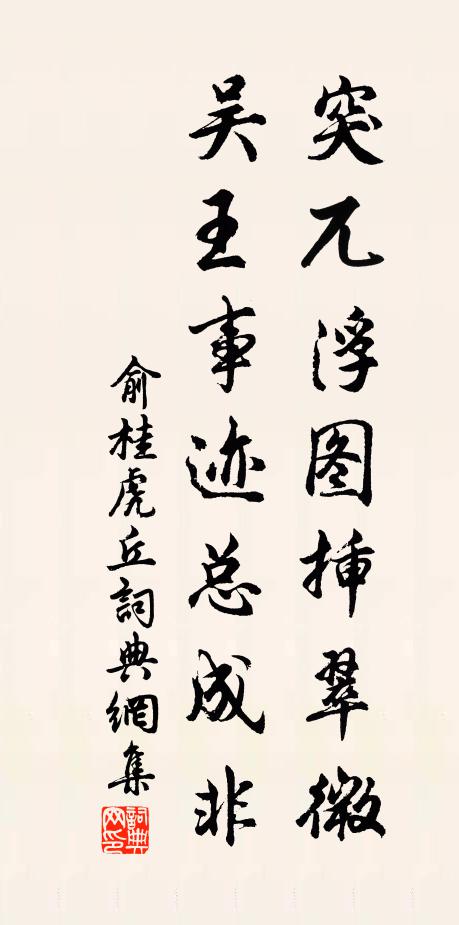 突兀浮图插翠微
吴王事迹总成非
俞桂虎丘詞典網集
詞典网印